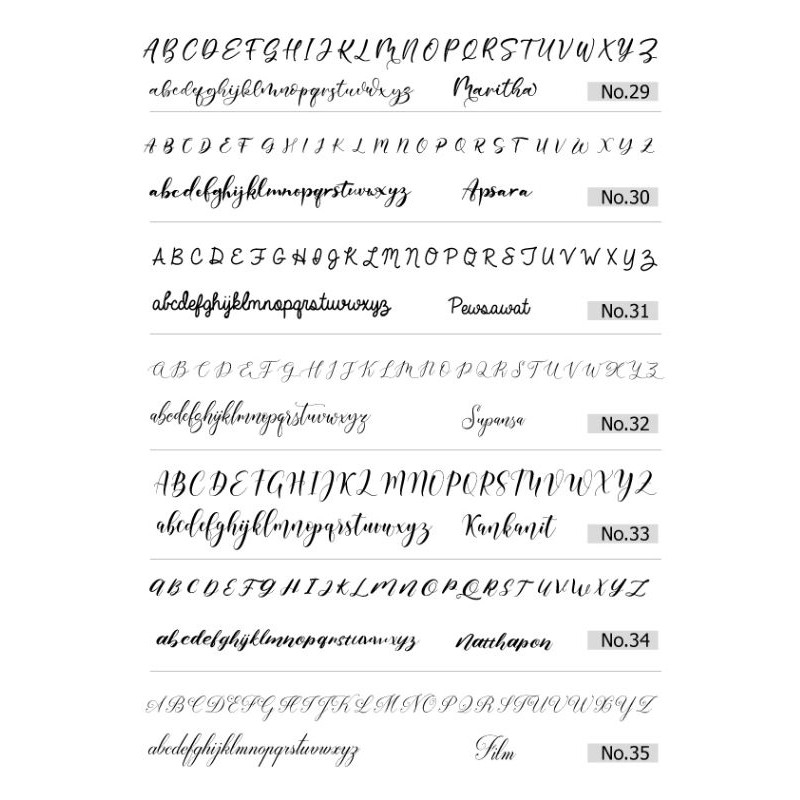 ABCDEFGHIJKLMNOPQRSTUVWXYZ
abcdefghijklmnopqrstuvwxyz Maritha No.29
ABCDEFGHIJKLMNOPQRSTUVWXYZ
abcdefghijklmnopqrstuvwxyz Apsara No.30
ABCDEFGHIJKLMNOPQRSTUVWXYZ
abcdefghijklmnopqrstuvwxyz Pewsawat No.31
ABCDEFGHIJKLMNOPQRSTUVWXYZ
abcdefghijklmnopqrstuvwxyz Supansa No.32
ABCDEFGHIJKLMNOPQRSTUVWXYZ
abcdefghijklmnopqrstuvwxyz Kankanit No.33
ABCDEFGHIJKLMNOPQRSTUVWXYZ
abcdefghijklmnopqrstuvwxyz Natthapon No.34
ABCDEFGHIJKLMNOPQRSTUVWXYZ
abcdefghijklmnopqrstuvwxyz Film No.35